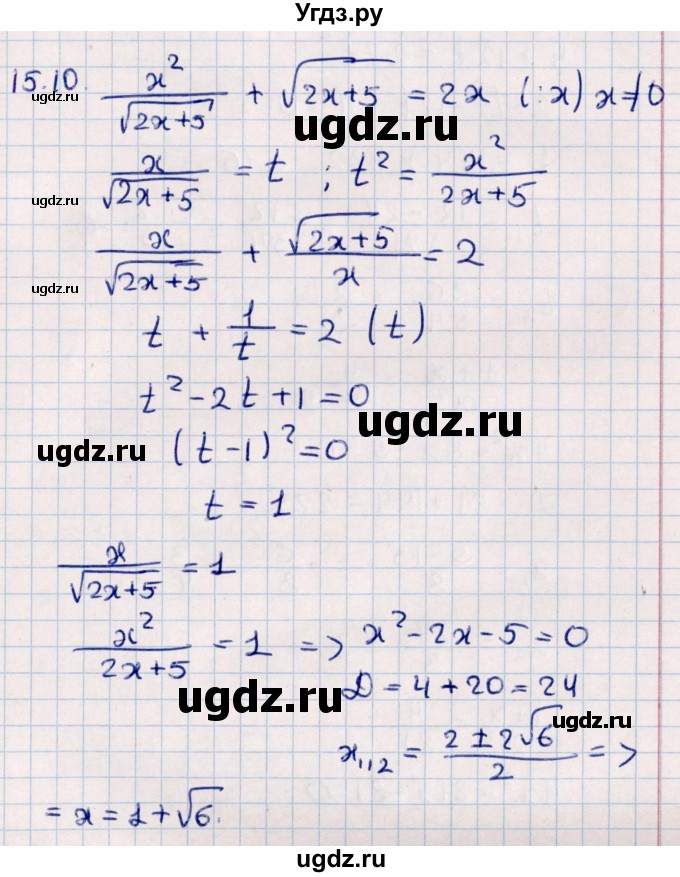 Угдз.ру
15.10. x²/√(2x+5) + √(2x+5) = 2x (:x) x≠0
ugdz.ru ugdz.ru ugdz.ru
x/√(2x+5) = t ; t² = x²/(2x+5)
ugdz.ru ugdz.ru
x/√(2x+5) + √(2x+5)/x = 2
ugdz.ru
t + 1/t = 2 (t)
t² - 2t + 1 = 0
ugdz.ru
(t-1)² = 0
ugdz.ru
t = 1
x/√(2x+5) = 1
x²/(2x+5) = 1 => x² - 2x - 5 = 0
ugdz.ru
D = 4 + 20 = 24
ugdz.ru
x₁,₂ = (2 ± 2√6)/2 =>
= x = 1 + √6.
ugdz.ru
ugdz.ru